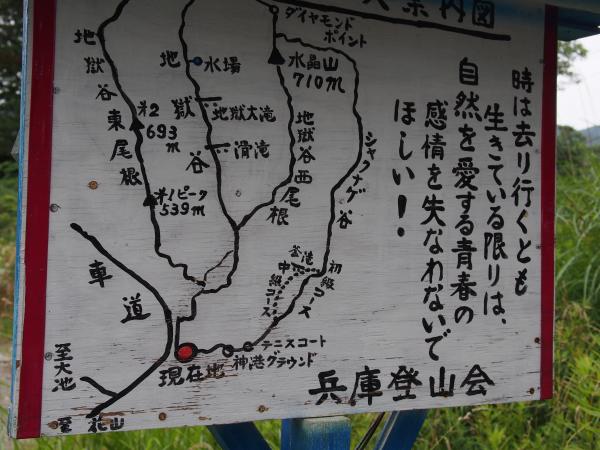 案内図
ダイヤモンド
ポイント
水晶山
710m
水場
地獄谷東尾根
地獄谷
地獄大滝
滑滝
地獄谷西尾根
シャクナゲ谷
※2
693m
※1ピーク
539m
釜滝
中級コース
初級コース
テニスコート
神港グラウンド
現在地
車道
至大池
至花山
時は去り行くとも
生きている限りは、
自然を愛する青春の
感情を失なわないで
ほしい!・
兵庫登山会